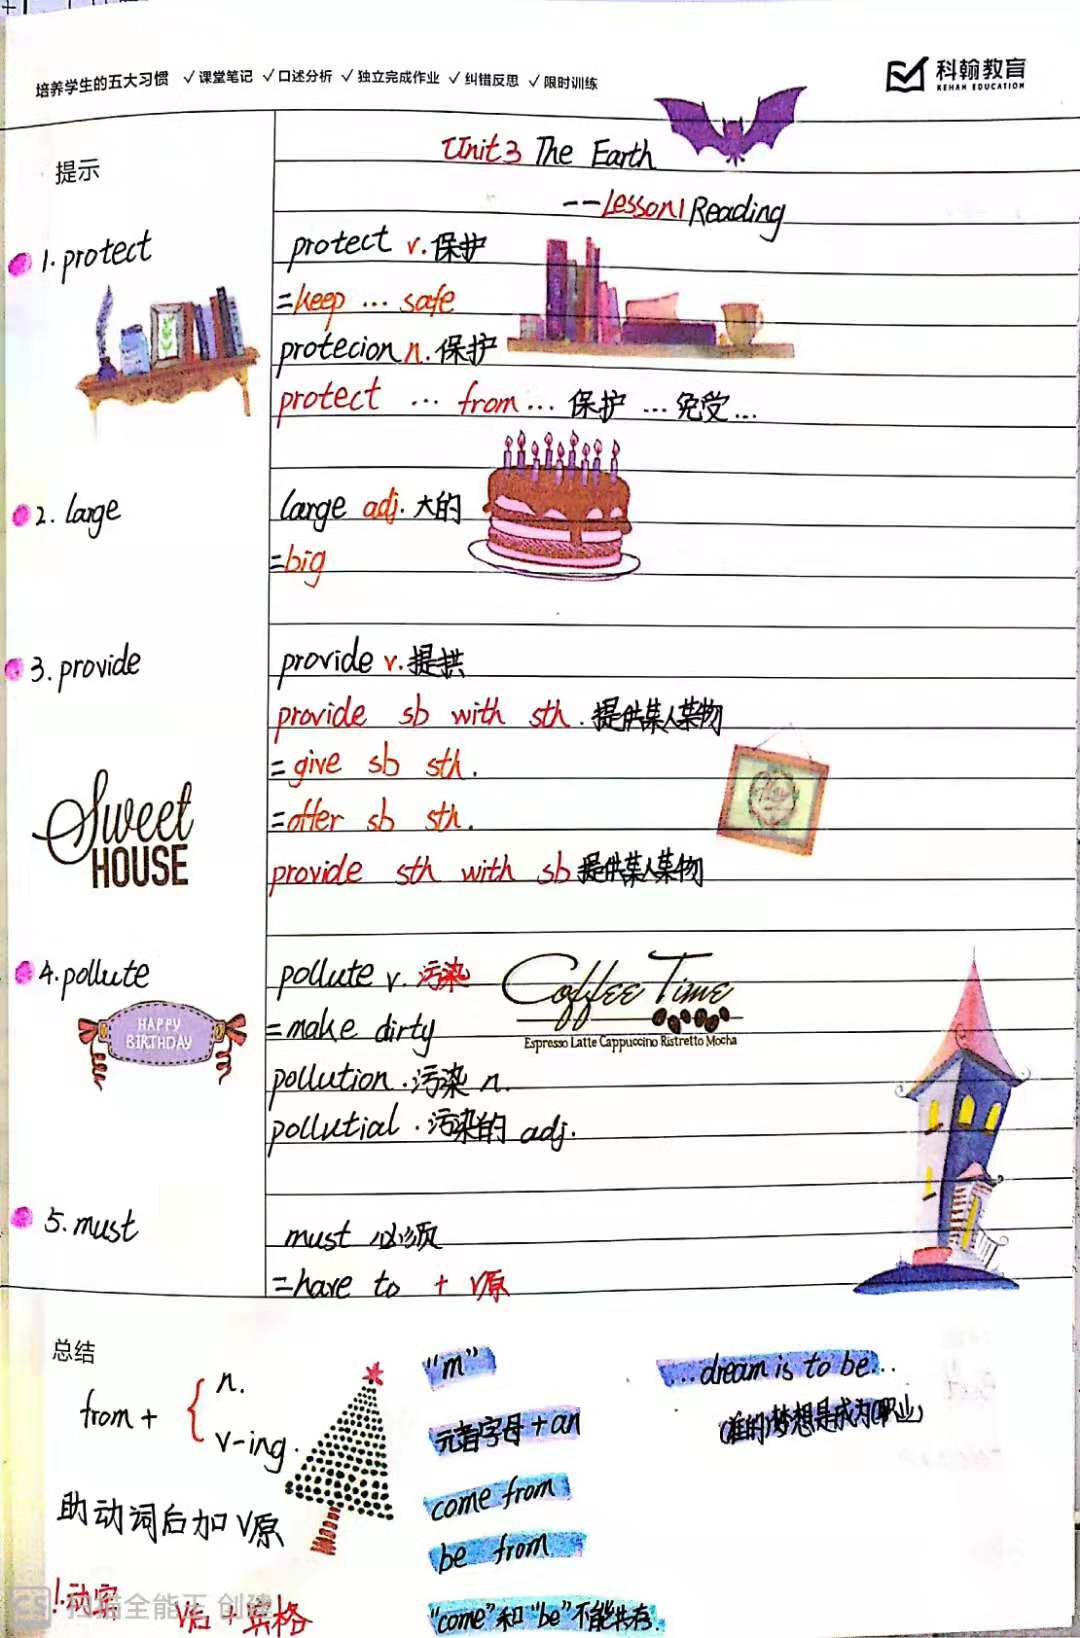 培养学生的五大习惯 ✓课堂笔记 ✓口述分析 ✓独立完成作业 ✓纠错反思 ✓限时训练
科翰教育
KEHAN EDUCATION
提示
Unit 3 The Earth
--Lesson1 Reading
1. protect
protect v. 保护
=keep … safe
protecion n. 保护
protect … from … 保护 … 免受 …
2. large
large adj. 大的
=big
3. provide
provide v. 提供
provide sb with sth. 提供某人某物
= give sb sth.
=offer sb sth.
provide sth with sb 提供某人某物
Sweet
HOUSE
4. pollute
pollute v. 污染
=make dirty
pollution . 污染 n.
pollutial . 污染的 adj.
Coffee Time
Espresso Latte Cappuccino Ristretto Mocha
HAPPY
BIRTHDAY
5. must
must 必须
=have to + v原
总结
from + { n.
v-ing.
助动词后加 v原
!动宾
v后 + 宾格
"m"
元音字母 + an
come from
be from
"come"和"be"不能共存.
...dream is to be...
(谁的)梦想是成为(职业)
CS 扫描全能王 创建